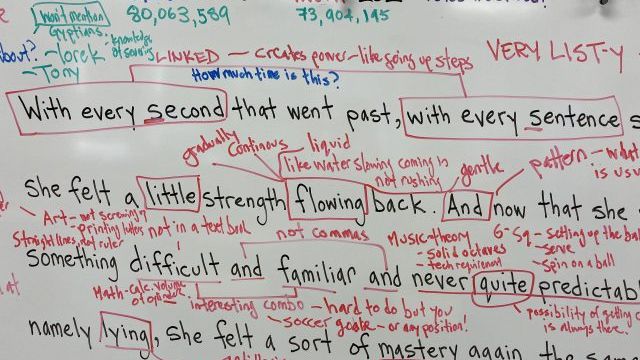 Won't mention 80,063,589 73,904,195
Gyptians.
about? - Iorek - knowledge LINKED - creates power - like going up steps VERY LIST-Y
- Tony How much time is this?
With every second that went past, with every sentence s
gradually continous liquid
like water slowing coming in gentle pattern - what
not rushing is usu
She felt a little strength flowing back. And now that she
Art - not screwing
- printing letters not in a text book not commas Music-theory 6-Sq - setting up the ball
Straight lines, not ruler - solid octaves - serve
- tech requirement - spin on a ball
something difficult and familiar and never quite predictabl
Math-calc. volume
of cylinder interesting combo - hard to do but you possibility of getting
- soccer goalie - or any position! is always there.
namely lying, she felt a sort of mastery again, the same